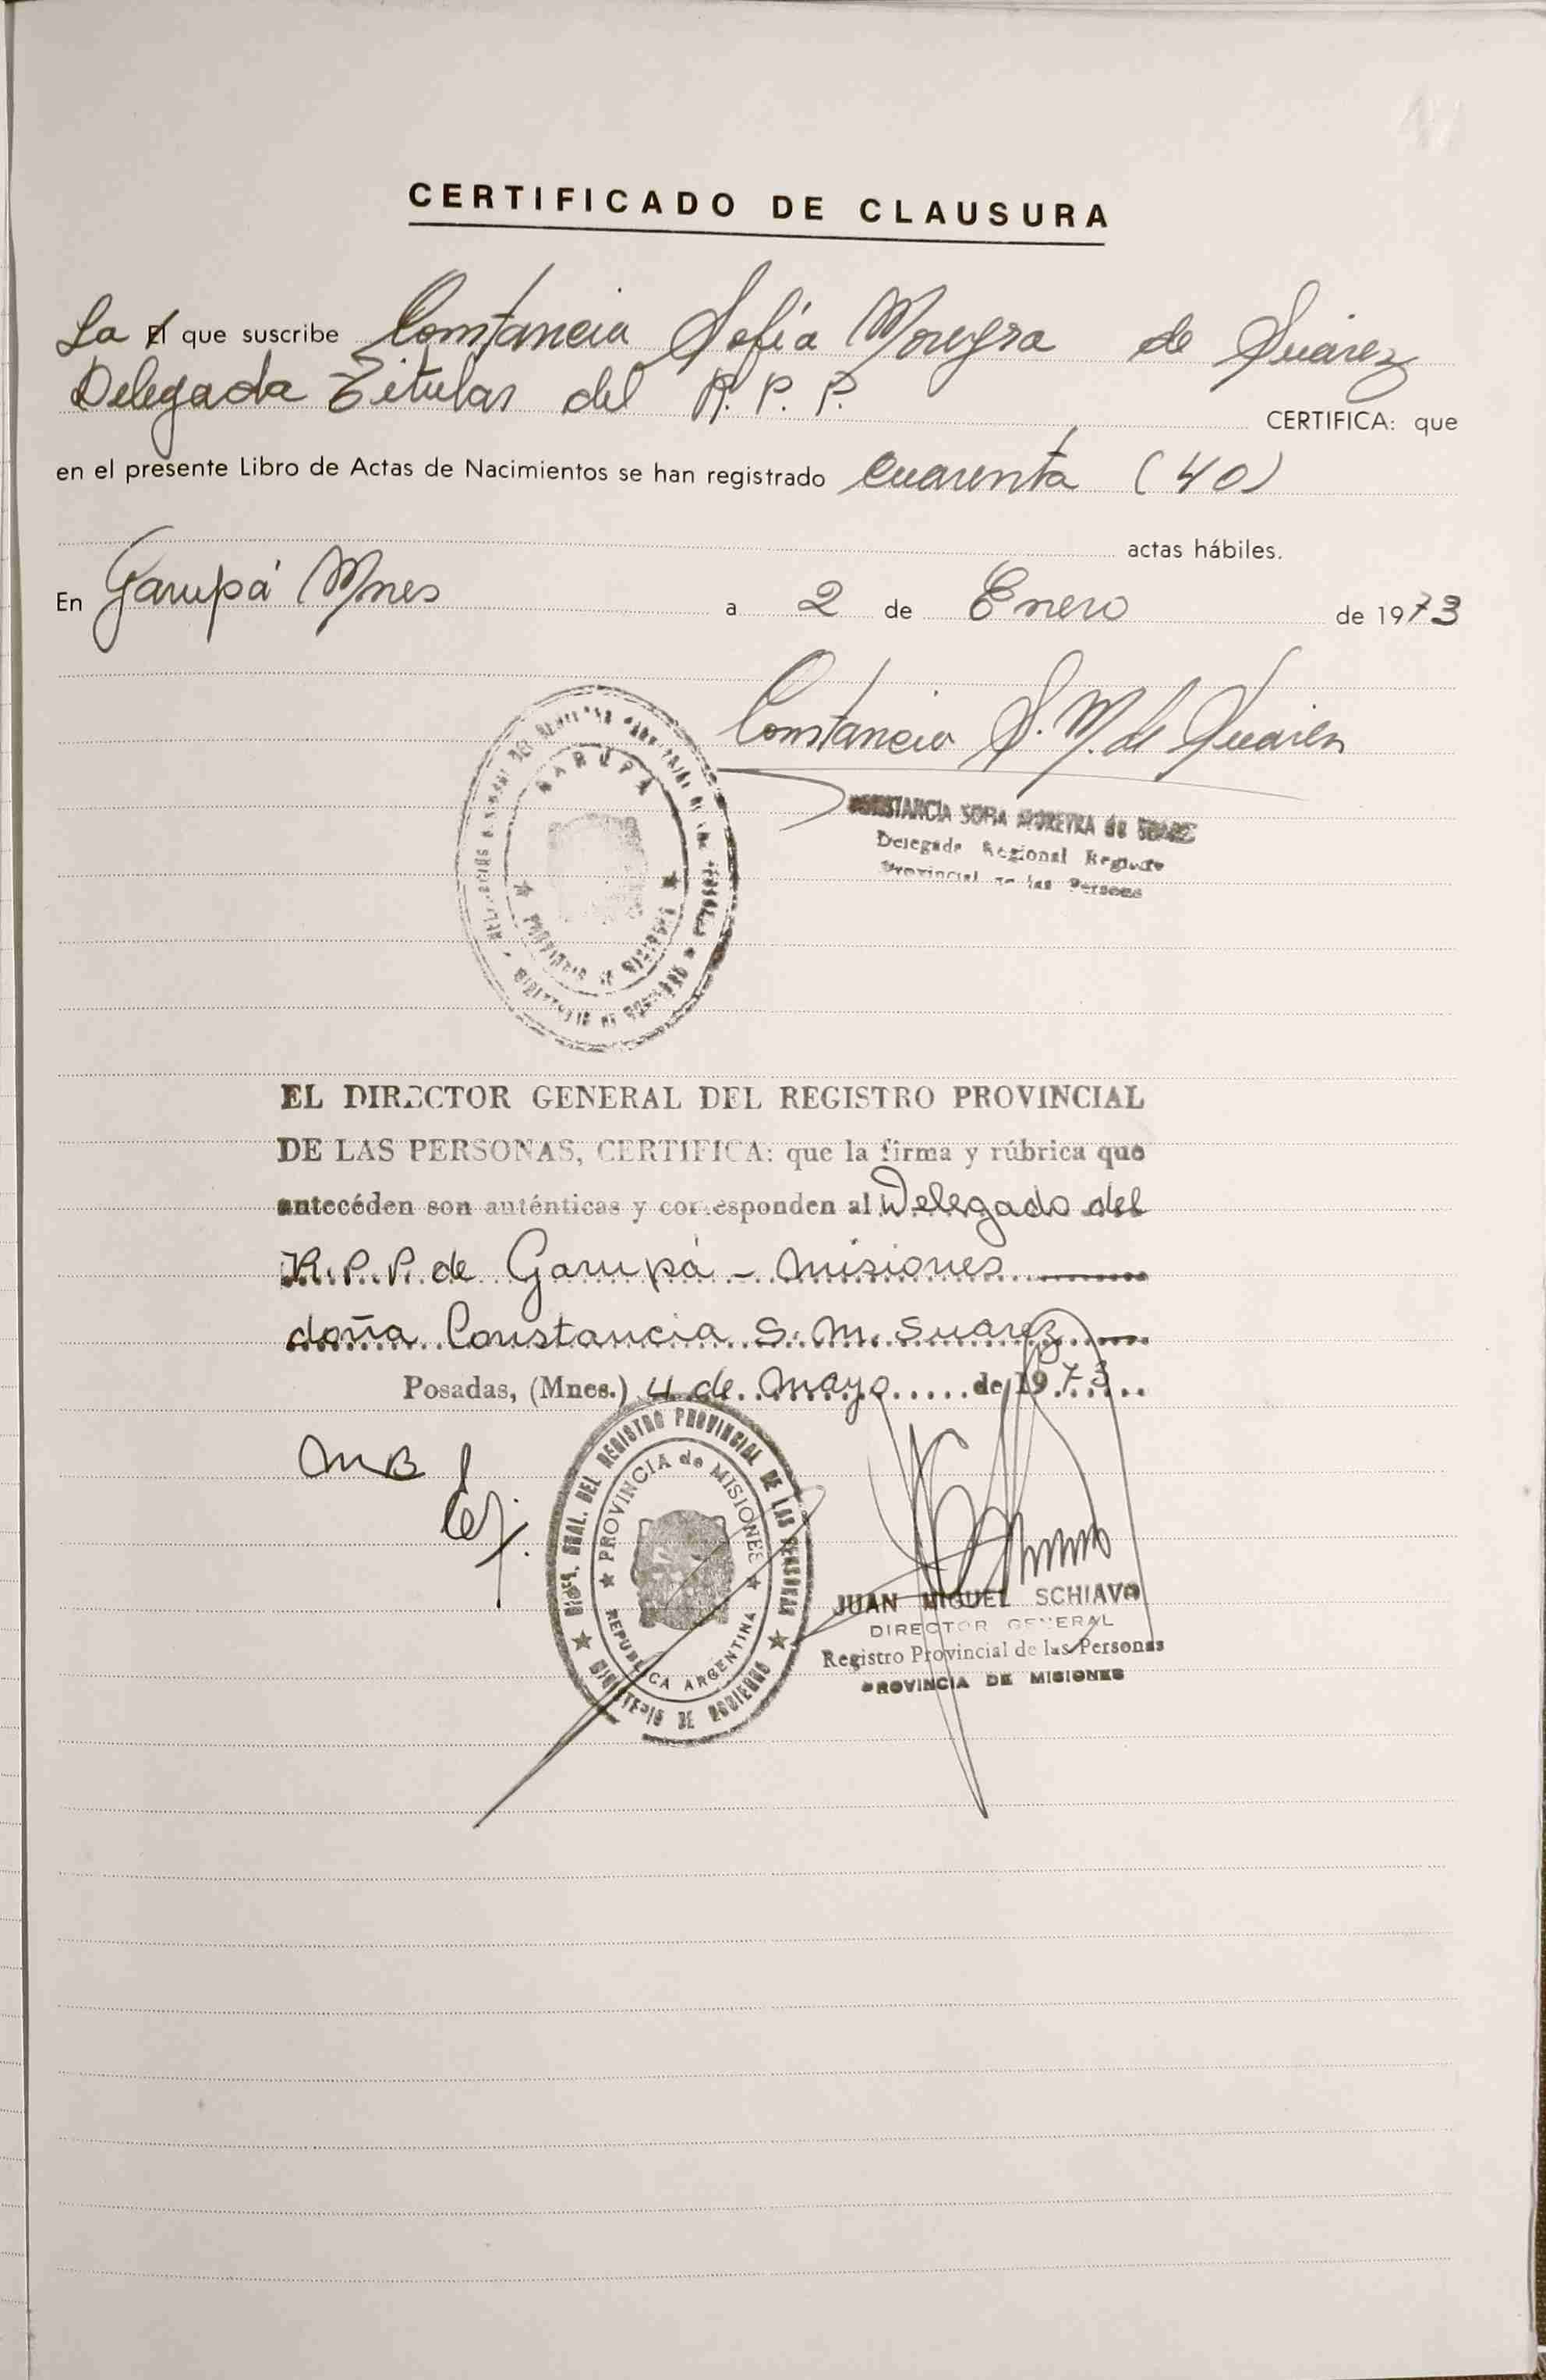 CERTIFICADO DE CLAUSURA
La El que suscribe Constancia Sofía Moreyra de Suárez
Delegada Titular del R. P. P. CERTIFICA: que
en el presente Libro de Actas de Nacimientos se han registrado cuarenta (40)
actas hábiles.
En Garupá Mnes a 2 de Enero de 1973
Constancia S. M. de Suárez
GARUPA
PROVINCIA DE MISIONES
CONSTANCIA SOFIA MOREYRA de SUAREZ
Delegada Regional Registro
Provincial de las Personas
EL DIRECTOR GENERAL DEL REGISTRO PROVINCIAL
DE LAS PERSONAS, CERTIFICA: que la firma y rúbrica que
antecéden son auténticas y corresponden al Delegado del
R. P. P. de Garupá - Misiones
doña Constancia S. M. Suarez
Posadas, (Mnes.) 4 de Mayo de 1973
DIRE. GRAL. DEL REGISTRO PROVINCIAL DE LAS PERSONAS
PROVINCIA de MISIONES
REPUBLICA ARGENTINA
MINISTERIO DE GOBIERNO
JUAN MIGUEL SCHIAVO
DIRECTOR GENERAL
Registro Provincial de las Personas
PROVINCIA DE MISIONES